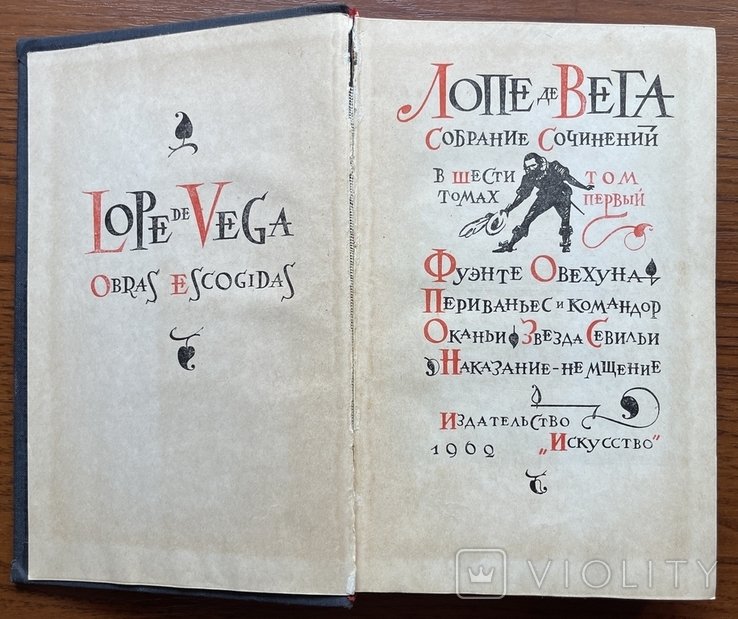 LOPE DE VEGA
OBRAS ESCOGIDAS
ЛОПЕ ДЕ ВЕГА
СОБРАНИЕ СОЧИНЕНИЙ
В ШЕСТИ
ТОМАХ
ТОМ
ПЕРВЫЙ
ФУЭНТЕ ОВЕХУНА
ПЕРИВАНЬЕС И КОМАНДОР
ОКАНЬИ ЗВЕЗДА СЕВИЛЬИ
НАКАЗАНИЕ-НЕ МЩЕНИЕ
ИЗДАТЕЛЬСТВО
1962 „ИСКУССТВО"
VIOLITY